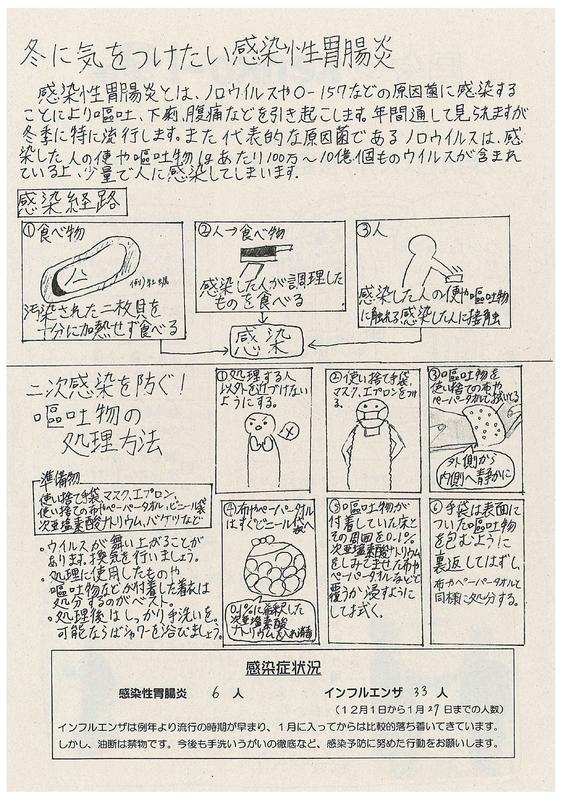 冬に気をつけたい感染性胃腸炎
感染性胃腸炎とは、ノロウイルスやO-157などの原因菌に感染する
ことにより嘔吐、下痢、腹痛などを引き起こします。年間通して見られますが
冬季に特に流行します。また代表的な原因菌であるノロウイルスは、感
染した人の便や嘔吐物1gあたり100万〜10億個ものウイルスが含まれ
ている上、少量で人に感染してしまいます。
感染経路
①食べ物
例)牡蠣
汚染された二枚貝を
十分に加熱せず食べる
②人→食べ物
感染した人が調理した
ものを食べる
③人
感染した人の便や嘔吐物
に触れる感染した人に接触
感染
二次感染を防ぐ!
嘔吐物の
処理方法
準備物
使い捨て手袋、マスク、エプロン、
使い捨ての布やペーパータオル、ビニール袋
次亜塩素酸ナトリウム、バケツなど
・ウイルスが舞い上がることが
あります。換気を行いましょう。
・処理に使用したものや
嘔吐物などが付着した着衣は
処分するのがベスト。
・処理後はしっかり手洗いを。
可能ならばシャワーを浴びましょう。
①処理する人
以外を近づけない
ようにする。
②使い捨て手袋、
マスク、エプロンをつけ
る。
③嘔吐物を
使い捨ての布や
ペーパータオルで拭いとる
外側から
内側へ静かに
④布やペーパータオル
はすぐビニール袋へ
0.1%に希釈した
次亜塩素酸
ナトリウムを入れ消毒
⑤嘔吐物が
付着していた床と
その周囲を0.1%
次亜塩素酸ナトリウム
をしみこませた布や
ペーパータオルなどで
覆うか浸すように
してお拭く。
⑥手袋は表面に
ついた嘔吐物
を包むように
裏返してはずし、
布やペーパータオルと
同様に処分する。
感染症状況
感染性胃腸炎 6 人 インフルエンザ 33 人
(12月1日から1月27日までの人数)
インフルエンザは例年より流行の時期が早まり、1月に入ってからは比較的落ち着いてきています。
しかし、油断は禁物です。今後も手洗いうがいの徹底など、感染予防に努めた行動をお願いします。